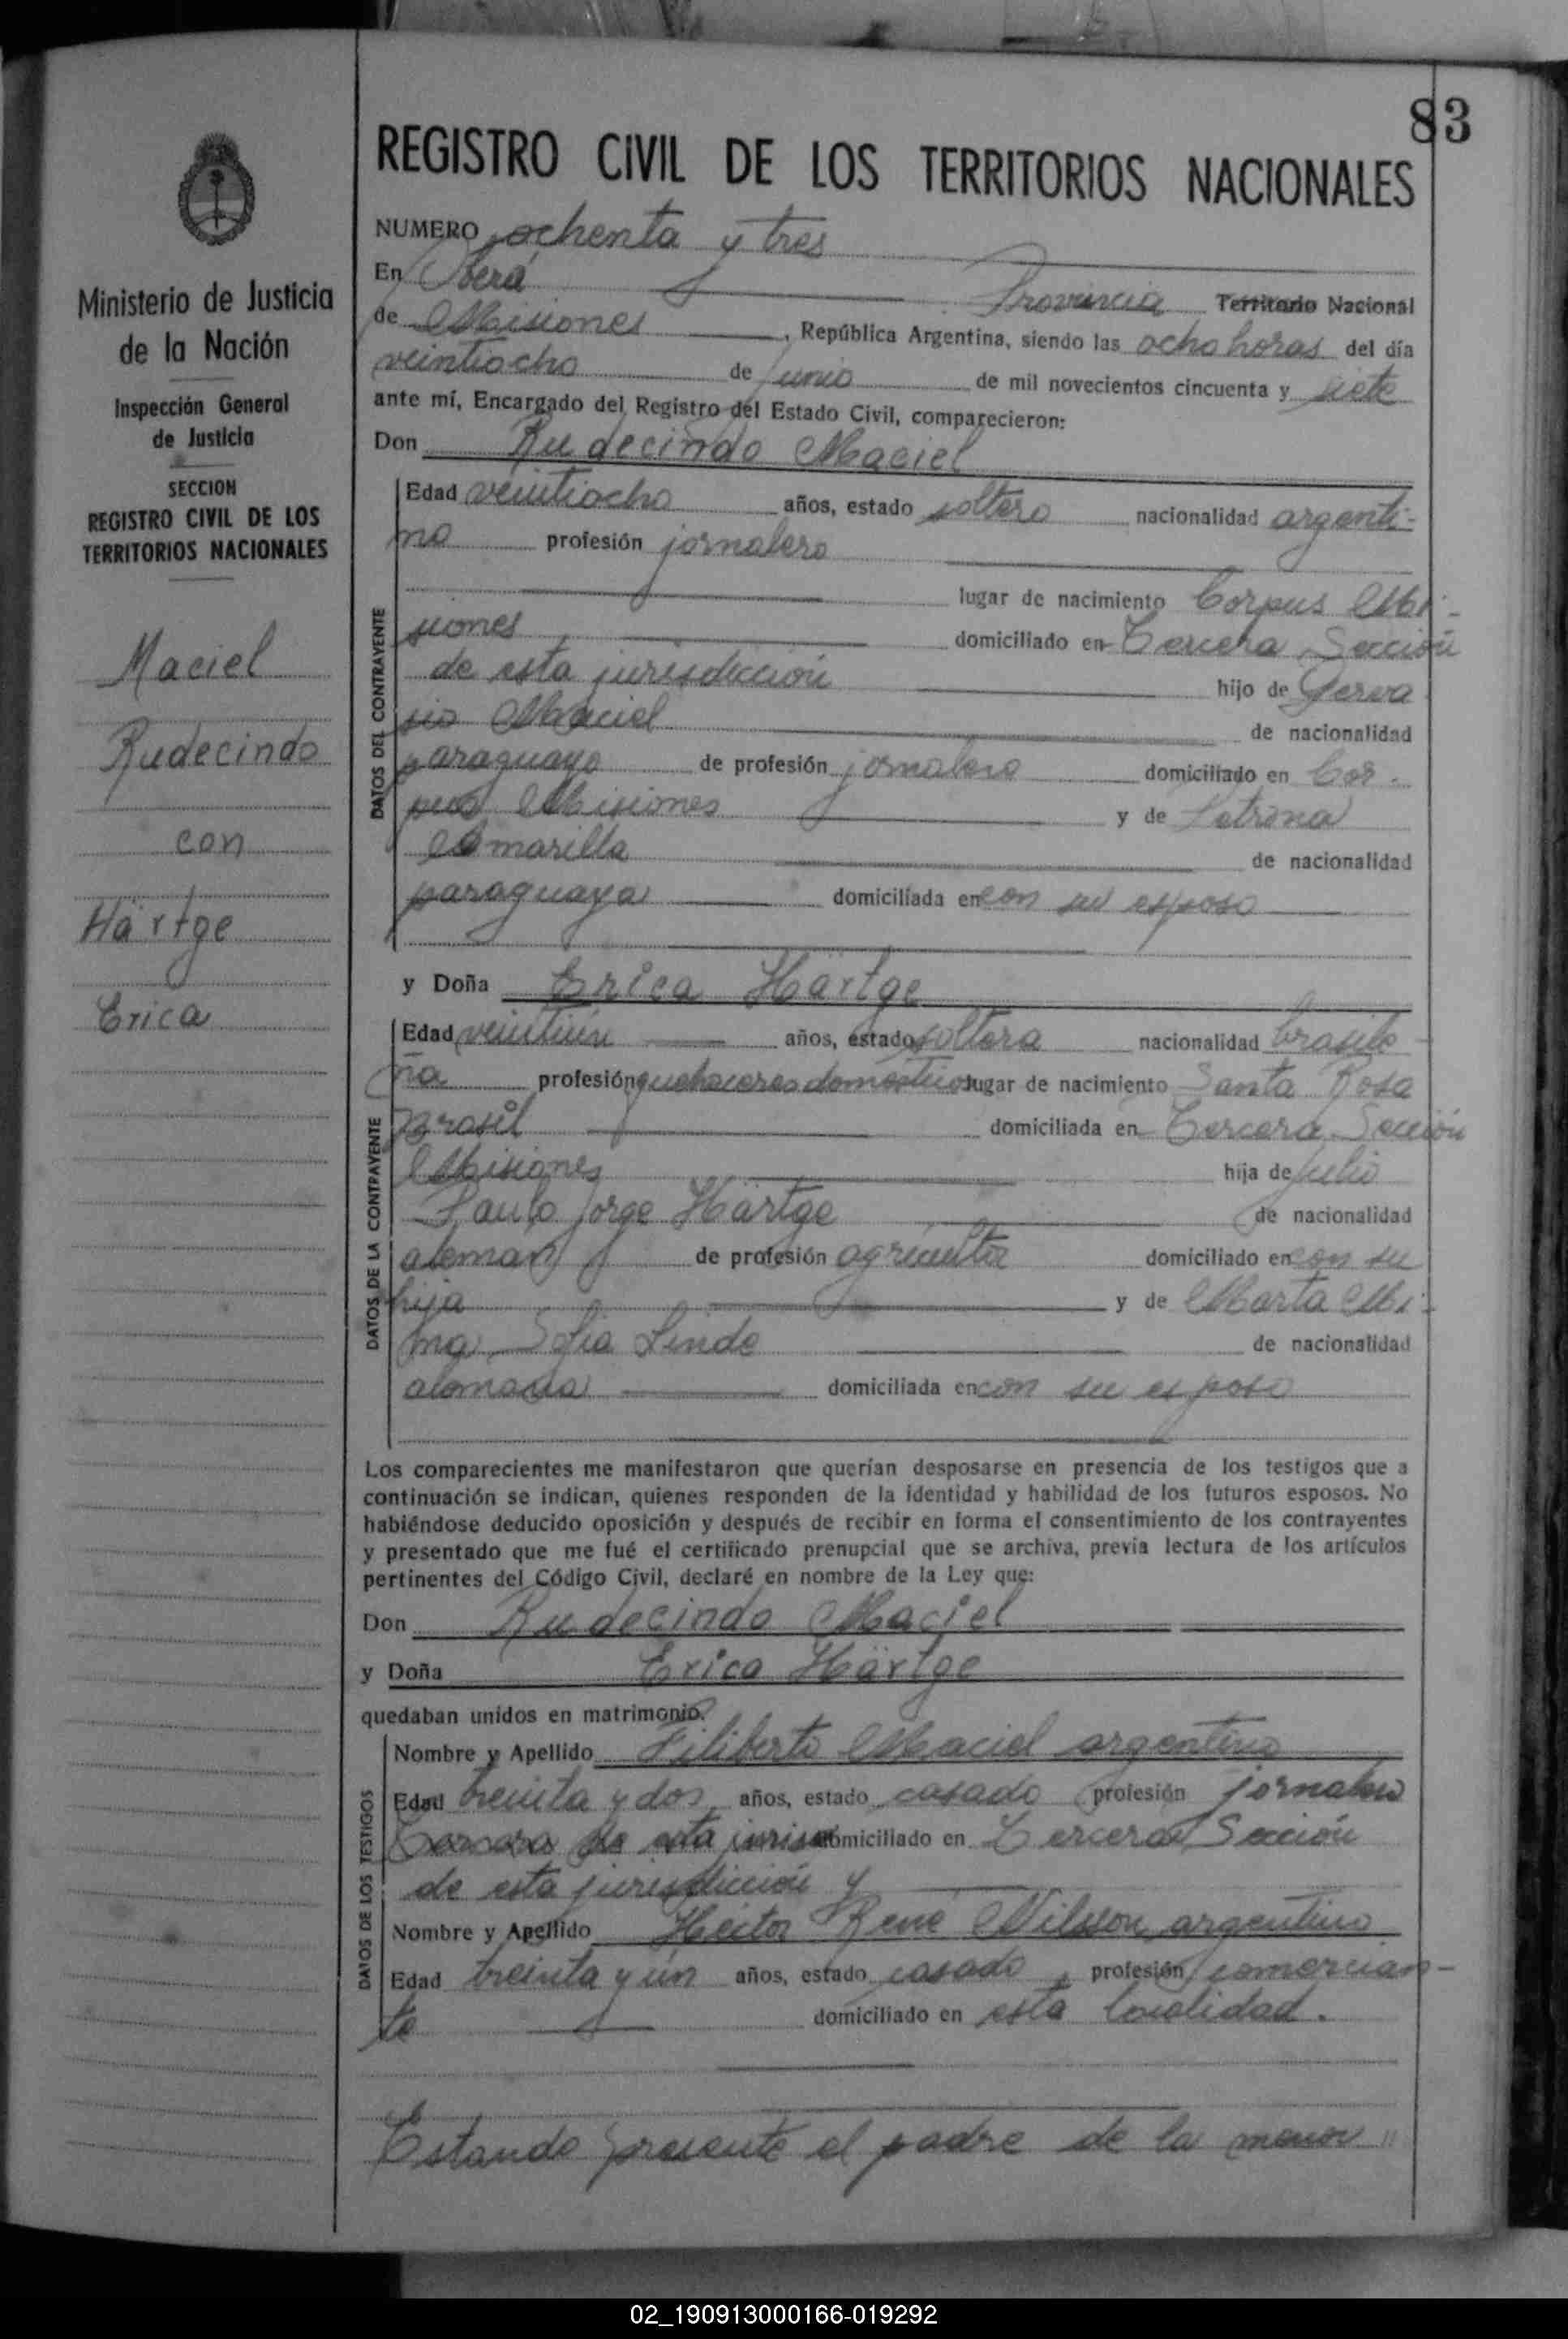 83
REGISTRO CIVIL DE LOS TERRITORIOS NACIONALES
NUMERO ochenta y tres
En Oberá Provincia Territorio Nacional
de Misiones, República Argentina, siendo las ocho horas del día
veintiocho de Junio de mil novecientos cincuenta y siete
ante mí, Encargado del Registro del Estado Civil, comparecieron:
Don Rudecindo Maciel
Edad veintiocho años, estado soltero nacionalidad argenti-
no profesión jornalero
lugar de nacimiento Corpus Mi-
siones domiciliado en Tercera Sección
de esta jurisdicción hijo de Gerva
sio Maciel de nacionalidad
paraguayo de profesión jornalero domiciliado en Cor-
pus Misiones y de Petrona
Amarilla de nacionalidad
paraguaya domiciliada en con su esposo
y Doña Erica Härtge
Edad veintiún años, estado soltera nacionalidad brasile-
ña profesión quehaceres domésticos lugar de nacimiento Santa Rosa
Brasil domiciliada en Tercera Sección
Misiones hija de Julio
Paulo Jorge Härtge de nacionalidad
aleman de profesión agricultor domiciliado en con su
hija y de Marta Mi-
na Sofia Linde de nacionalidad
alemana domiciliada en con su esposo
Los comparecientes me manifestaron que querían desposarse en presencia de los testigos que a
continuación se indican, quienes responden de la identidad y habilidad de los futuros esposos. No
habiéndose deducido oposición y después de recibir en forma el consentimiento de los contrayentes
y presentado que me fué el certificado prenupcial que se archiva, previa lectura de los artículos
pertinentes del Código Civil, declaré en nombre de la Ley que:
Don Rudecindo Maciel
y Doña Erica Härtge
quedaban unidos en matrimonio.
Nombre y Apellido Filiberto Maciel argentino
Edad treinta y dos años, estado casado profesión jornalero
Tercera de esta juris domiciliado en Tercera Sección
de esta jurisdicción y
Nombre y Apellido Héctor René Nilsson argentino
Edad treinta y un años, estado casado, profesión comercian-
te domiciliado en esta localidad.
Estando presente el padre de la menor "
Ministerio de Justicia
de la Nación
Inspección General
de Justicia
SECCION
REGISTRO CIVIL DE LOS
TERRITORIOS NACIONALES
Maciel
Rudecindo
con
Härtge
Erica
DATOS DEL CONTRAYENTE
DATOS DE LA CONTRAYENTE
DATOS DE LOS TESTIGOS
02_190913000166-019292